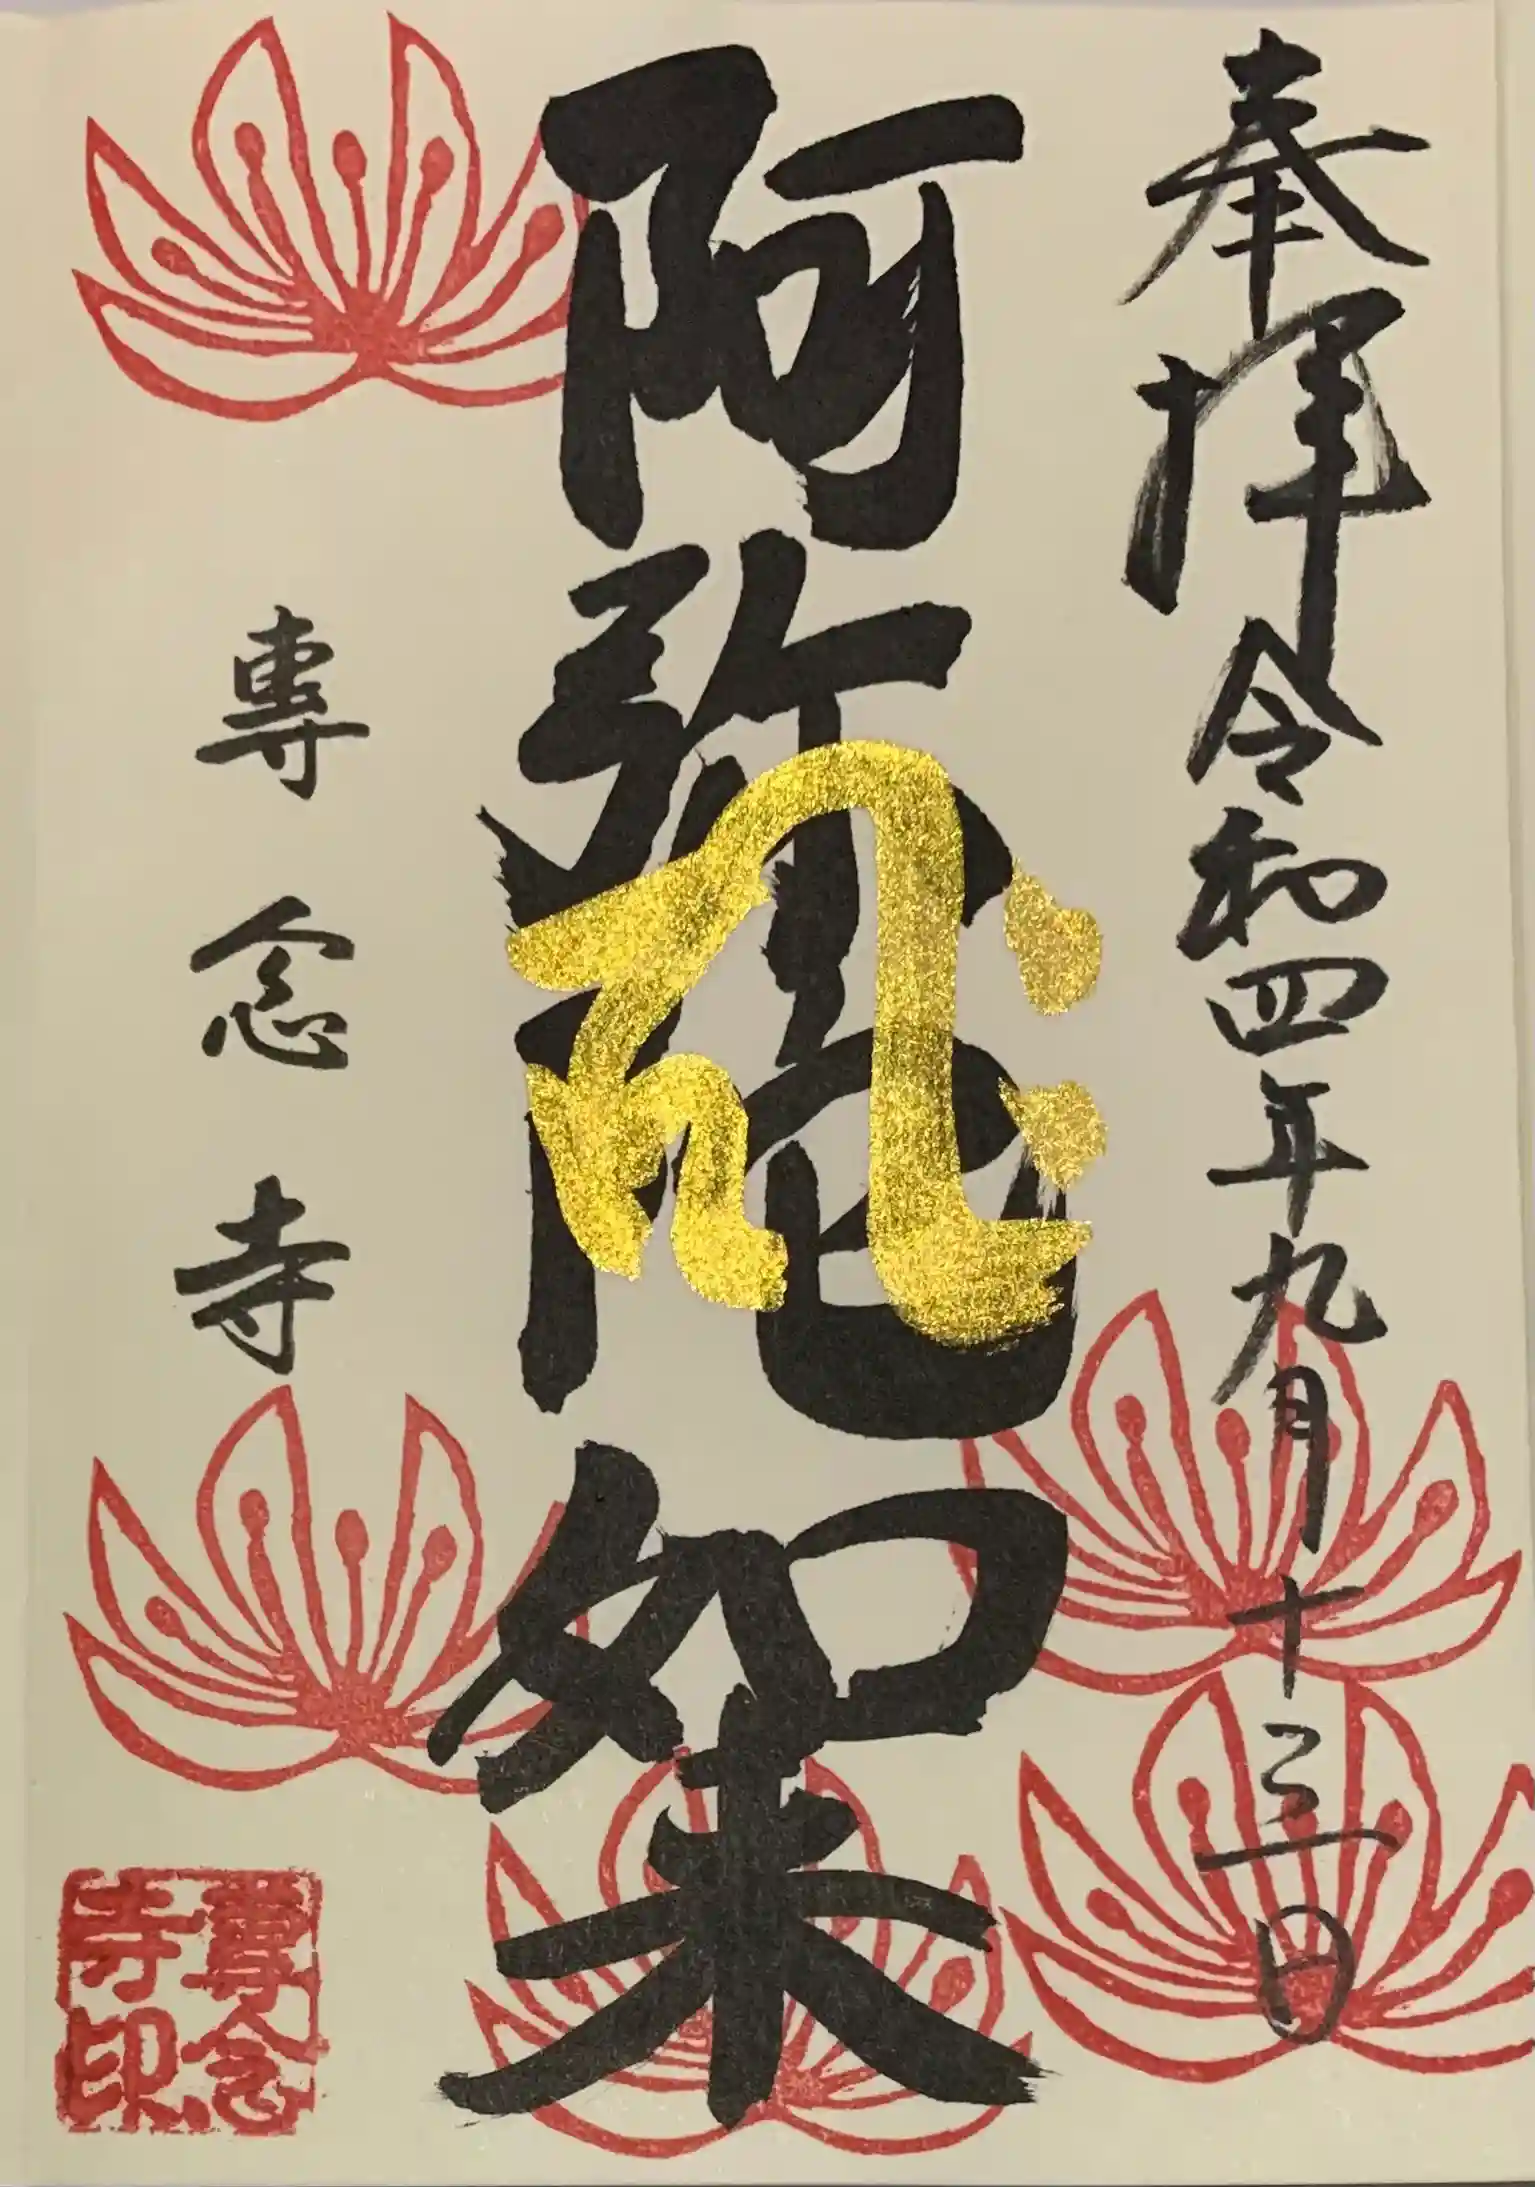 奉拝
令和四年九月十三日
阿弥陀如来
𑖮𑖿𑖨𑖱𑖾
專念寺
專念寺印